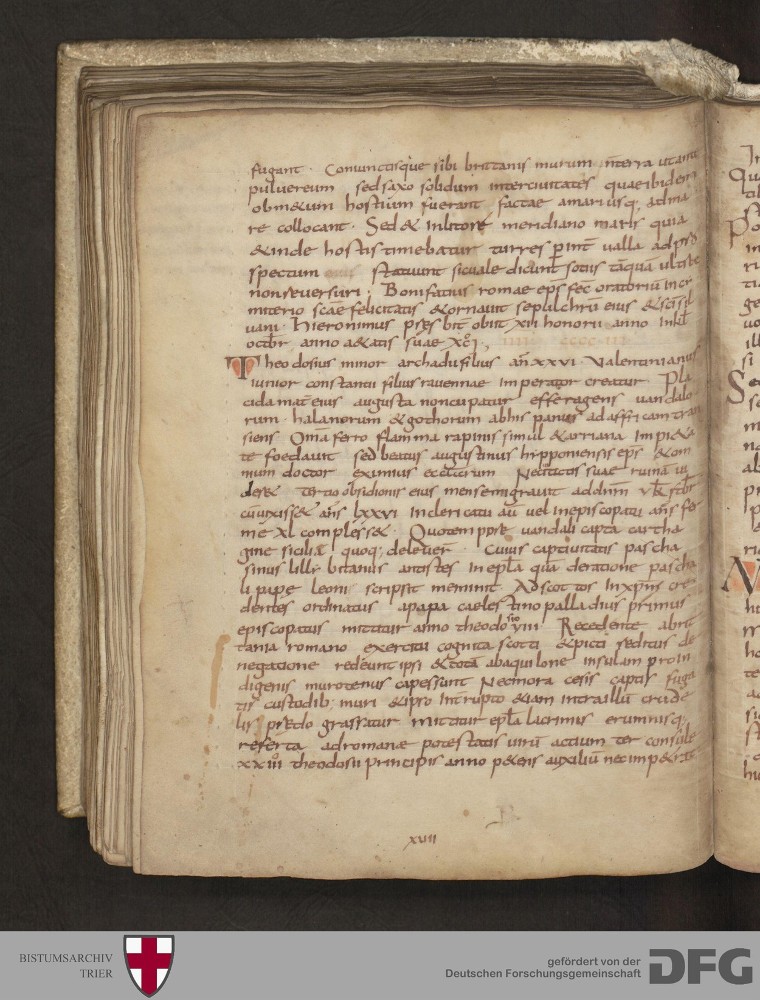 fugant · Coniunctisque sibi brittanis murum interra ut ante
puluereum sed saxo solidum inter ciuitates quae ibidem
ob m&um hostium fuerant factae a mari usq; ad ma
re collocant · Sed & inlitore meridiano maris quia
&inde hostis timebatur turres p int ualla ad p
spectum statuunt sic uale dicunt sociis tāquā ultra
non reuersuri · Bonifatius romae eps fec oratoriū in cy
miterio scae felicitatis &ornauit sepulchrū eius &sci sil
uani · Hieronimus psbs obiit XII honorii anno
octobr anno a&atis suae XCI ,
Theodosius minor archadii filius an XXVI · Valentinianus
iunior constantii filius rauennae imperator creatur Pla
cida mat eius augusta noncupatur efferagens uandalo
rum · halanorum &gothorum ab his panus ad affricam tran
siens Omā ferro flamma rapinis simul &arriana impi&a
te foedauit sed beatus augustinus hipponensis eps &om
nium doctor eximius ecclticrum Ne ciuitatis suae ruinā ui
der& tertio obsidionis eius mense migrauit ad dnm
cū uixiss& ans LXXVI in clericatu au uel in episcopatu ans fer
me XL compless& · Quo tempore uandali capta cartha
gine siciliā quoq; deleuer · Cuius captiuitatis pascha
sinus lilly bitanus antistes in epla quā de ratione pascha
li pape leoni scripsit meminit Ad scottos in xpm cre
dentes ordinatus a papa caelestino palladius primus
episcopatus mittitur anno theodosio VIII Recedente a brit
tania romano exercitu cognita scotti &picti reditus de
negatione redeunt ipsi &totā ab aquilone insulam pro in
digenis muro tenus capessunt Nec mora cesis captis fuga
tis custodib; muri &ipso intrupto &iam intra illū crude
lis predo grassatur mittitur epla lacrimis erumnisq;
referta ad romanae potestatis uirū actium ter consule
XXIII theodosii principis anno petens auxiliū nec impetrat
XVII
BISTUMSARCHIV
TRIER
gefördert von der
Deutschen Forschungsgemeinschaft
DFG